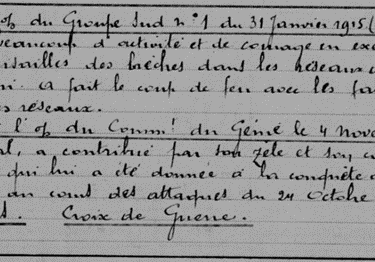 du Groupe Sud n° 1 du 31 Janvier 1915.(
beaucoup d'activité et de courage en exé
isailles des brèches dans les réseaux
a fait le coup de feu avec les fa
s réseaux.
l'of du Commt du Génie le 4 Nove
al, a contribué par son zèle et son co
qui lui a été donnée à la conquête d
au cours des attaques du 24 Octobre
s. Croix de Guerre.